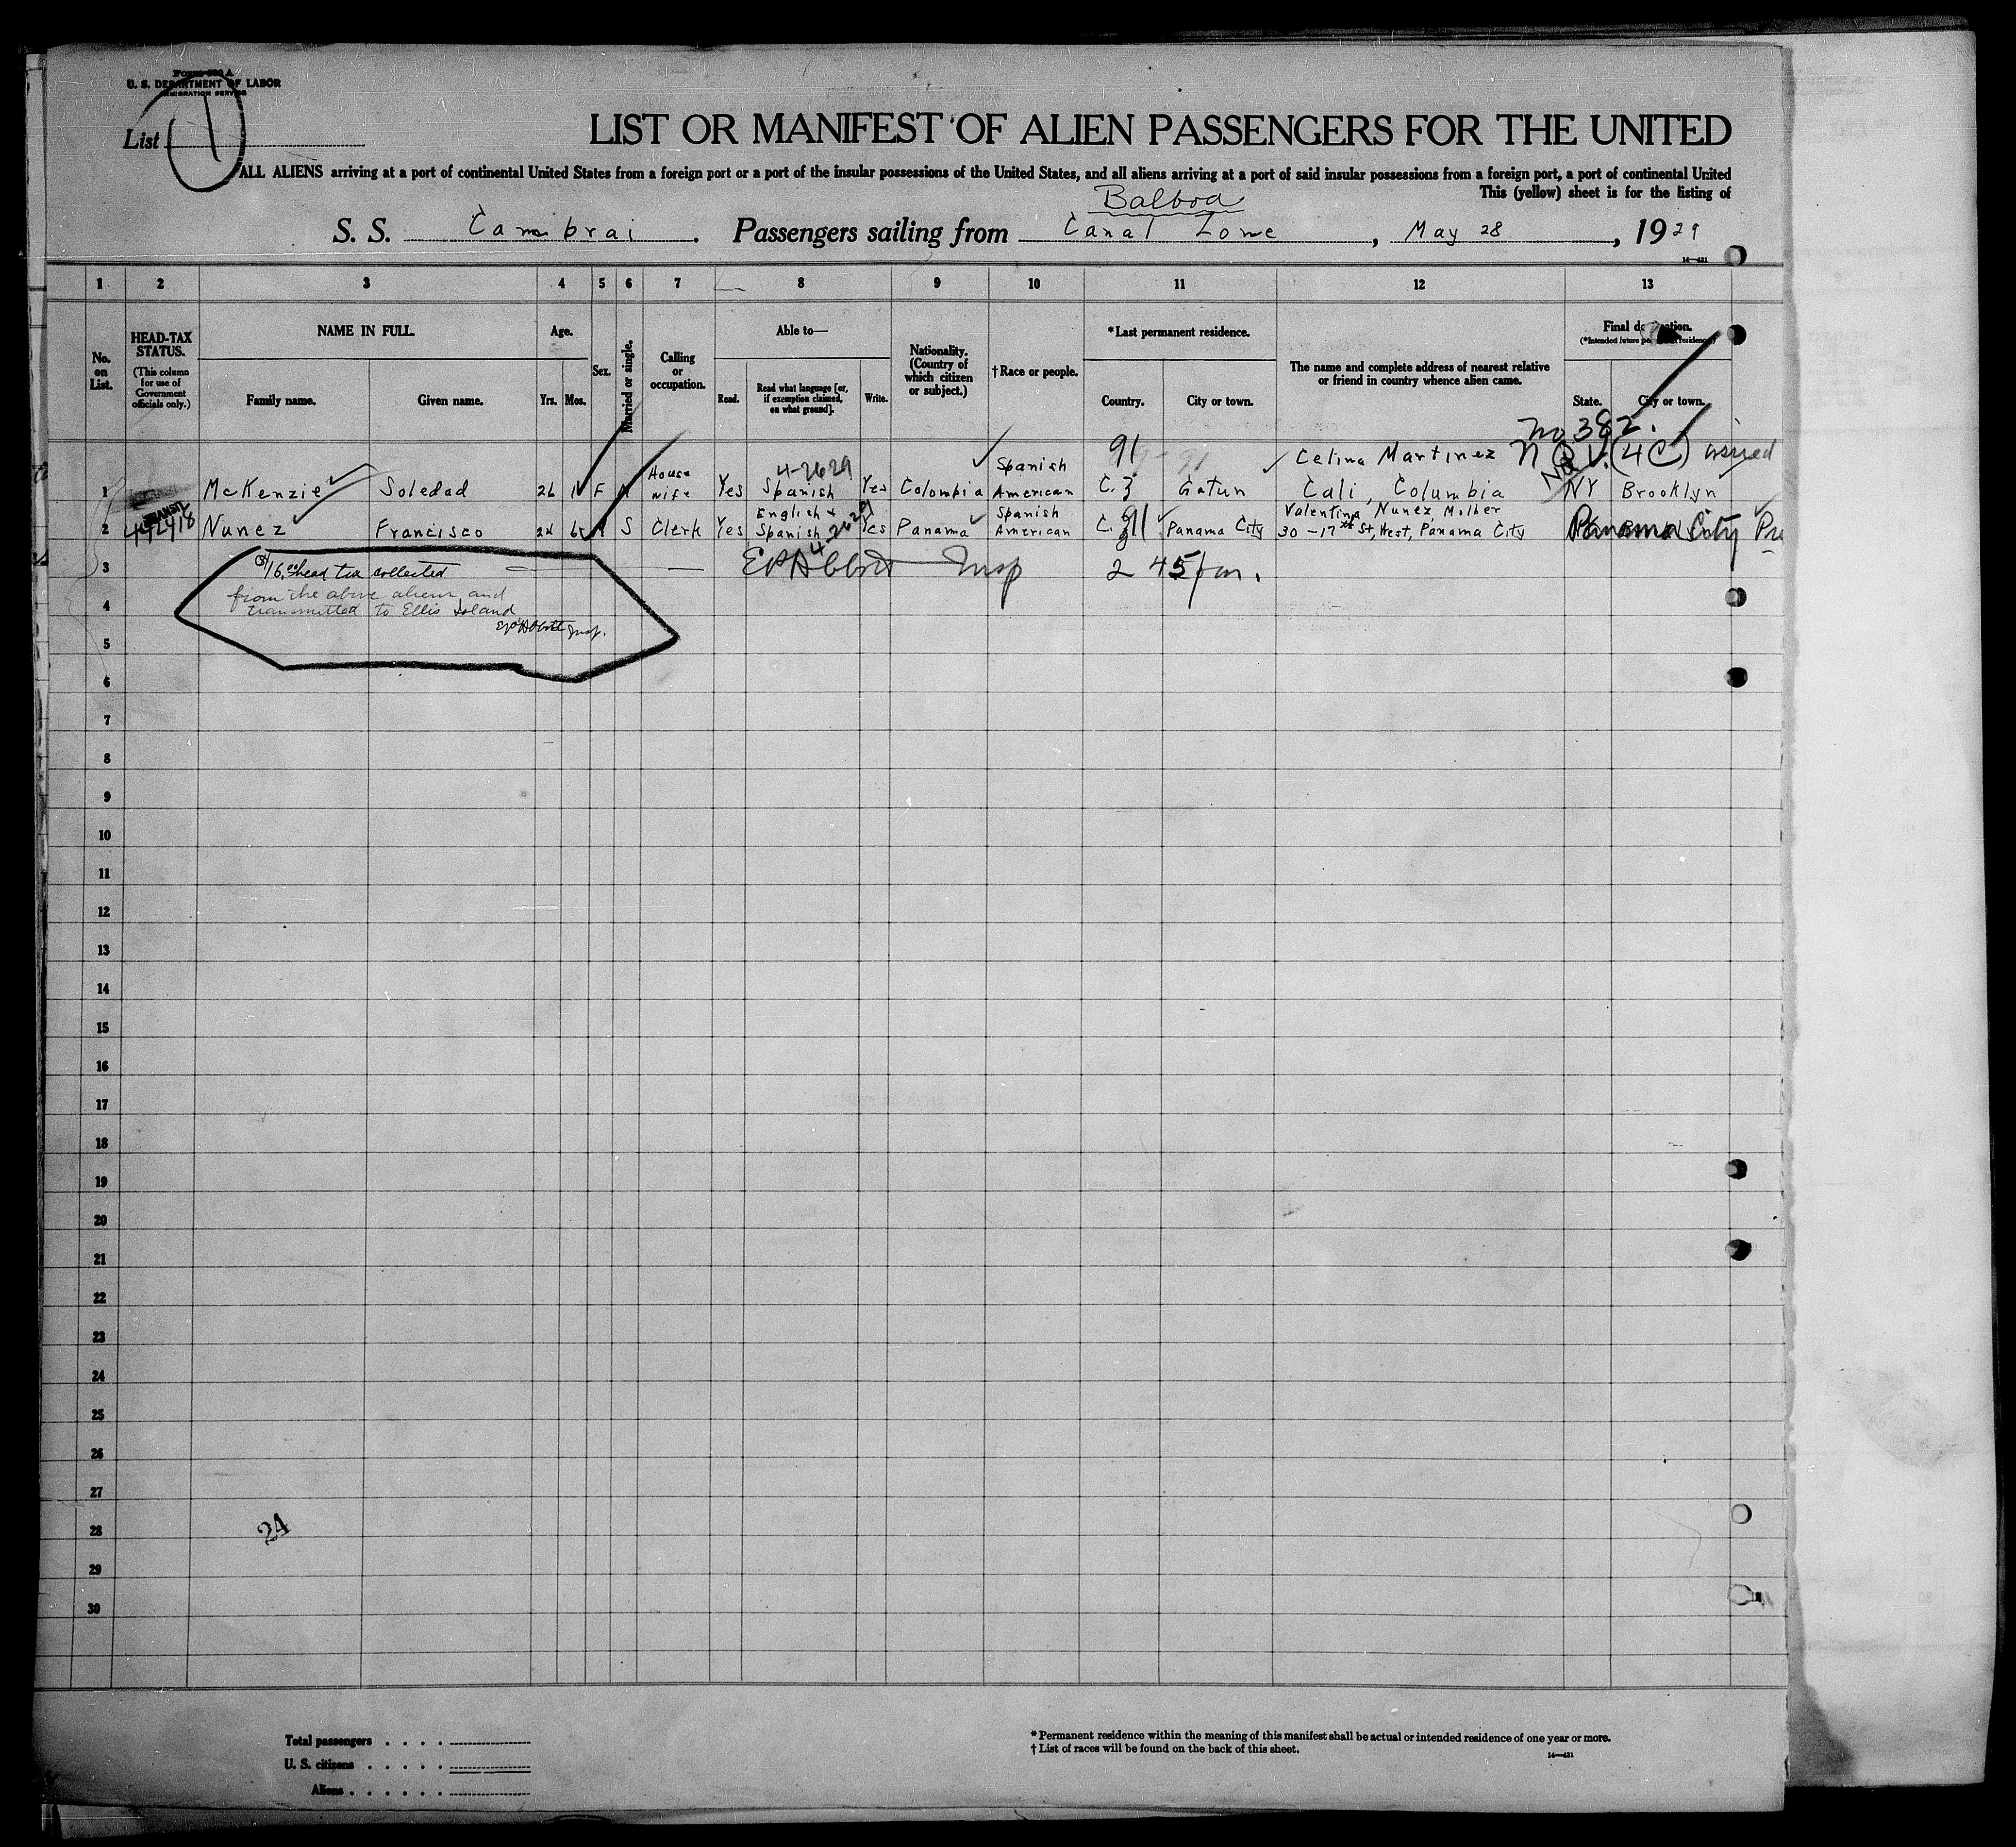 Form 500 A
U. S. DEPARTMENT OF LABOR
IMMIGRATION SERVICE
List 1
LIST OR MANIFEST OF ALIEN PASSENGERS FOR THE UNITED
ALL ALIENS arriving at a port of continental United States from a foreign port or a port of the insular possessions of the United States, and all aliens arriving at a port of said insular possessions from a foreign port, a port of continental United
This (yellow) sheet is for the listing of
Balboa
S. S. Cambrai. Passengers sailing from Canal Zone, May 28, 1929
14—431
1 2 3 4 5 6 7 8 9 10 11 12 13
No. on List.
HEAD-TAX STATUS.
(This column for use of Government officials only.)
NAME IN FULL.
Family name. Given name.
Age.
Yrs. Mos.
Sex.
Married or single.
Calling or occupation.
Able to—
Read. Read what language [or, if exemption claimed, on what ground]. Write.
Nationality. (Country of which citizen or subject.)
†Race or people.
*Last permanent residence.
Country. City or town.
The name and complete address of nearest relative or friend in country whence alien came.
Final destination.
(*Intended future permanent residence)
State. City or town.
No 382.
1 McKenzie Soledad 26 1 F M House wife Yes 4-2629 Spanish Yes Colombia Spanish American 91 C.Z Gatun Celina Martinez Cali, Columbia NY Brooklyn
(4C) issued
2 TRANSIT Nunez Francisco 24 6 M S Clerk Yes English & Spanish Yes Panama Spanish American C.Z 91 Panama City Valentina Nunez, Mother 30 -17th St, West, Panama City Panama City
3 $16.00 head tax collected
EP Abbott Insp 2 45 pm.
4 from the above aliens and
transmitted to Ellis Island
EP Abbott Insp.
5
6
7
8
9
10
11
12
13
14
15
16
17
18
19
20
21
22
23
24
25
26
27
28
24
29
30
Total passengers
U. S. citizens
Aliens
*Permanent residence within the meaning of this manifest shall be actual or intended residence of one year or more.
†List of races will be found on the back of this sheet.
14—431